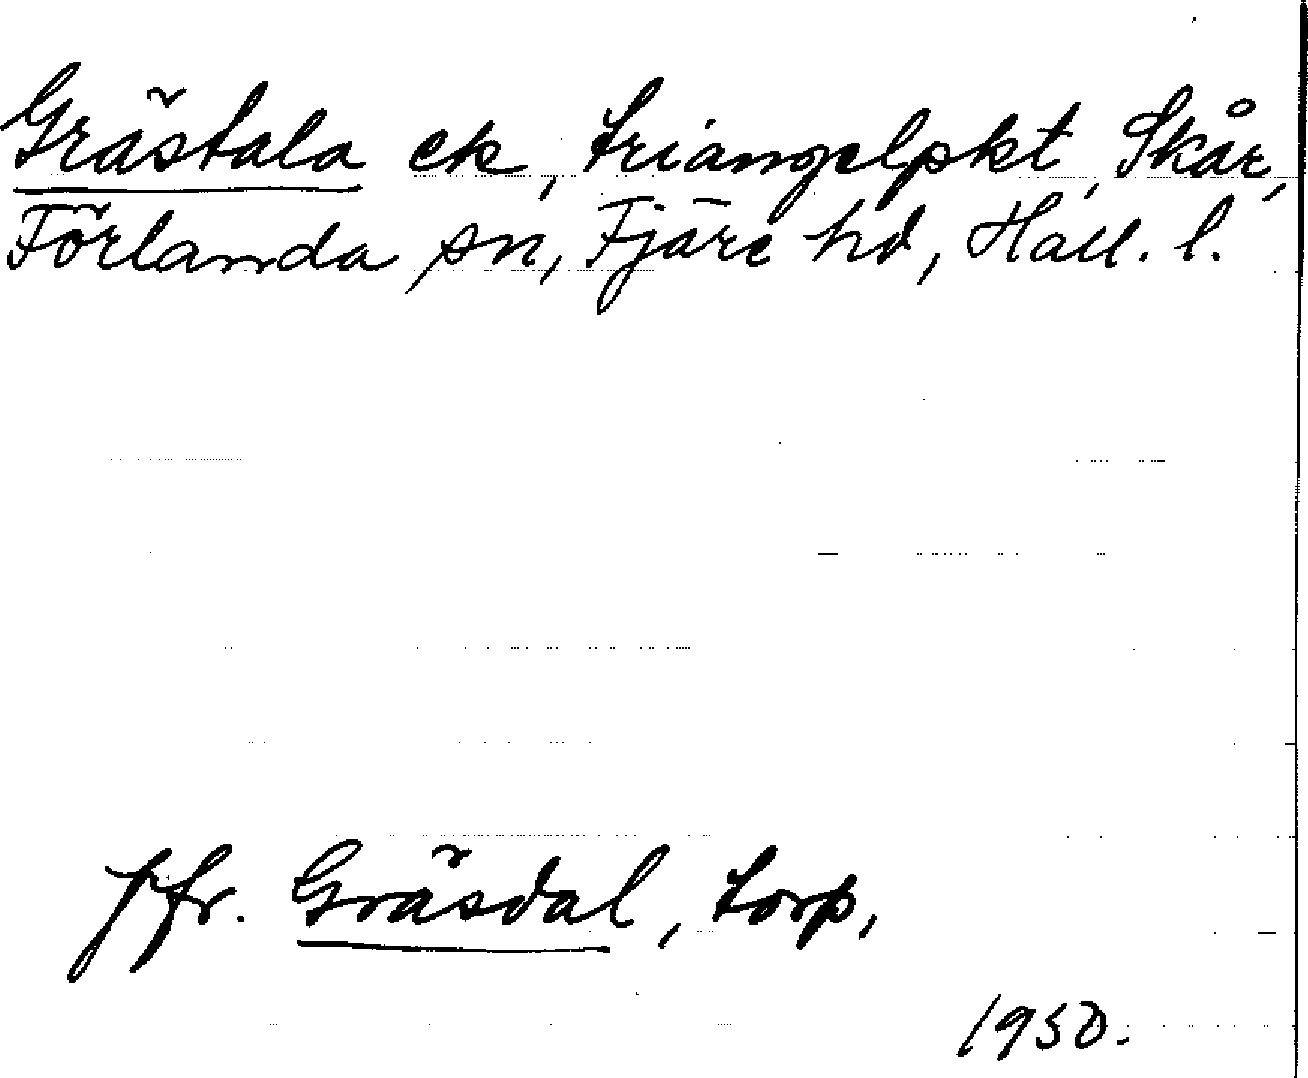 Grästala ek, triangelpkt, Skår,
Förlanda sn, Fjäre hd, Hall. l.
Jfr. Gräsdal, torp,
1950.